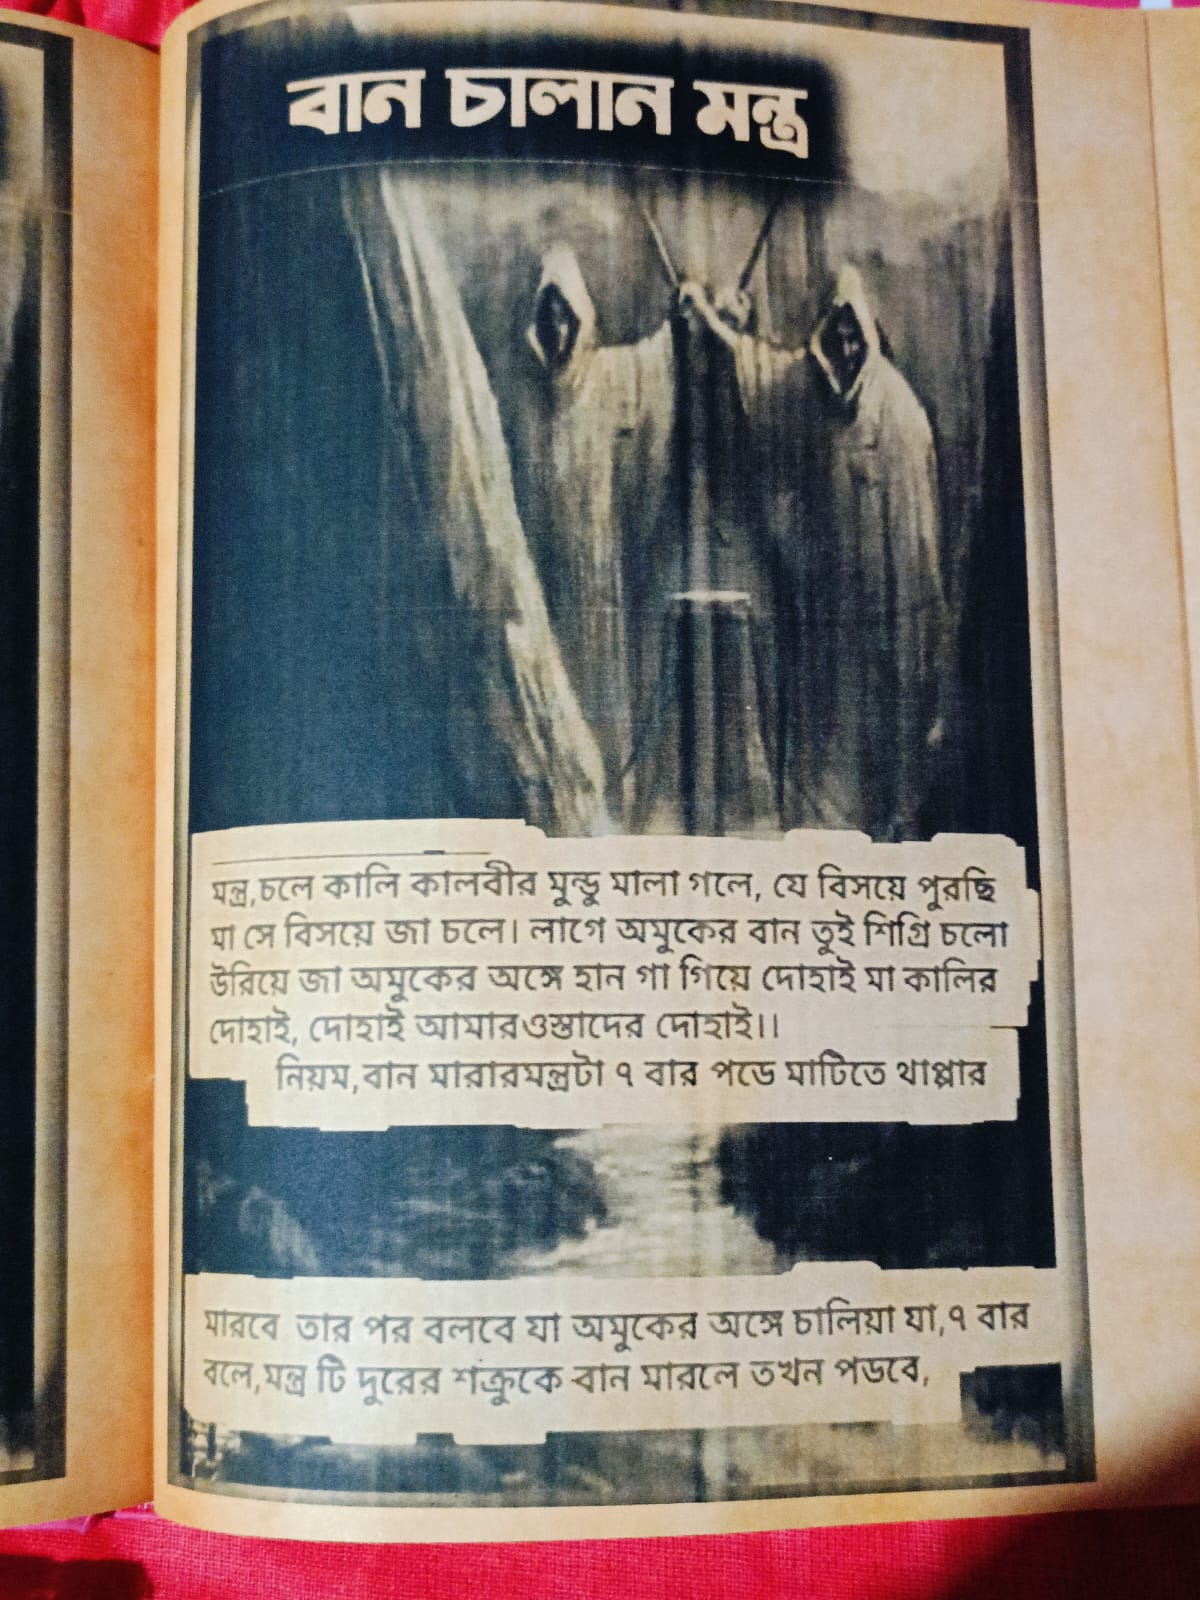 বান চালান মন্ত্র
মন্ত্র,চলে কালি কালবীর মুন্ডু মালা গলে, যে বিসয়ে পুরছি
মা সে বিসয়ে জা চলে। লাগে অমুকের বান তুই শিগ্রি চলো
উরিয়ে জা অমুকের অঙ্গে হান গা গিয়ে দোহাই মা কালির
দোহাই, দোহাই আমারওস্তাদের দোহাই।।
নিয়ম,বান মারারমন্ত্রটা ৭ বার পডে মাটিতে থাপ্পার
মারবে তার পর বলবে যা অমুকের অঙ্গে চালিয়া যা,৭ বার
বলে,মন্ত্র টি দুরের শক্রুকে বান মারলে তখন পডবে,